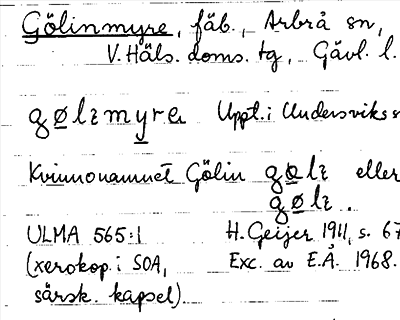 Gölinmyre, fäb., Arbrå sn,
V. Häls. doms. tg, Gävl. l.
gølɩmyrɐ Uppt. i Undersviks s
Kvinnonamnet Gölin gølɩ eller
gølɩ.
ULMA 565:1 H. Geijer 1911, s. 67
(xerokop. i SOA, Exc. av E.Å. 1968.
särsk. kapsel).